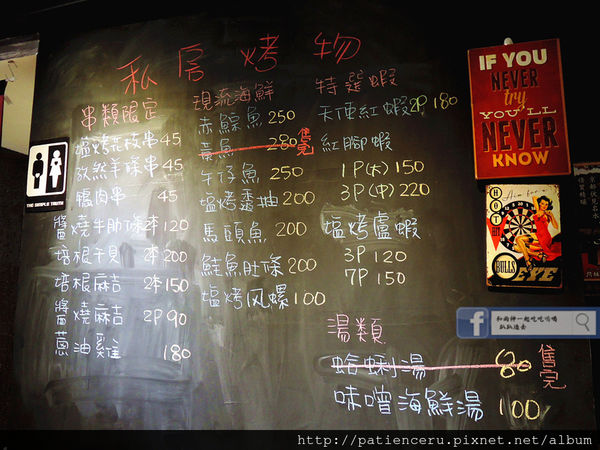 私房烤物
串類限定
塩烤花枝串 45
孜然羊條串 45
鴨肉串 45
醬燒牛肋條 2本 120
培根干貝 2本 200
培根麻吉 2本 150
醬燒麻吉 2P 90
蔥油雞 180
現流海鮮
赤鯮魚 250
黃魚 280 售完
午仔魚 250
塩烤透抽 200
馬頭魚 200
鮭魚肚條 200
塩烤风螺 100
特選蝦
天使紅蝦 2P 180
紅腳蝦
1P(大) 150
3P(中) 220
塩烤盧蝦
3P 120
7P 150
湯類
蛤蜊湯 80 售完
味噌海鮮湯 100
THE SIMPLE TRUTH
IF YOU
NEVER
try
YOU'LL
NEVER
KNOW
HOT
BULLS
EYE
和兩神一起吃吃喝喝
趴趴造去
http://patienceru.pixnet.net/album